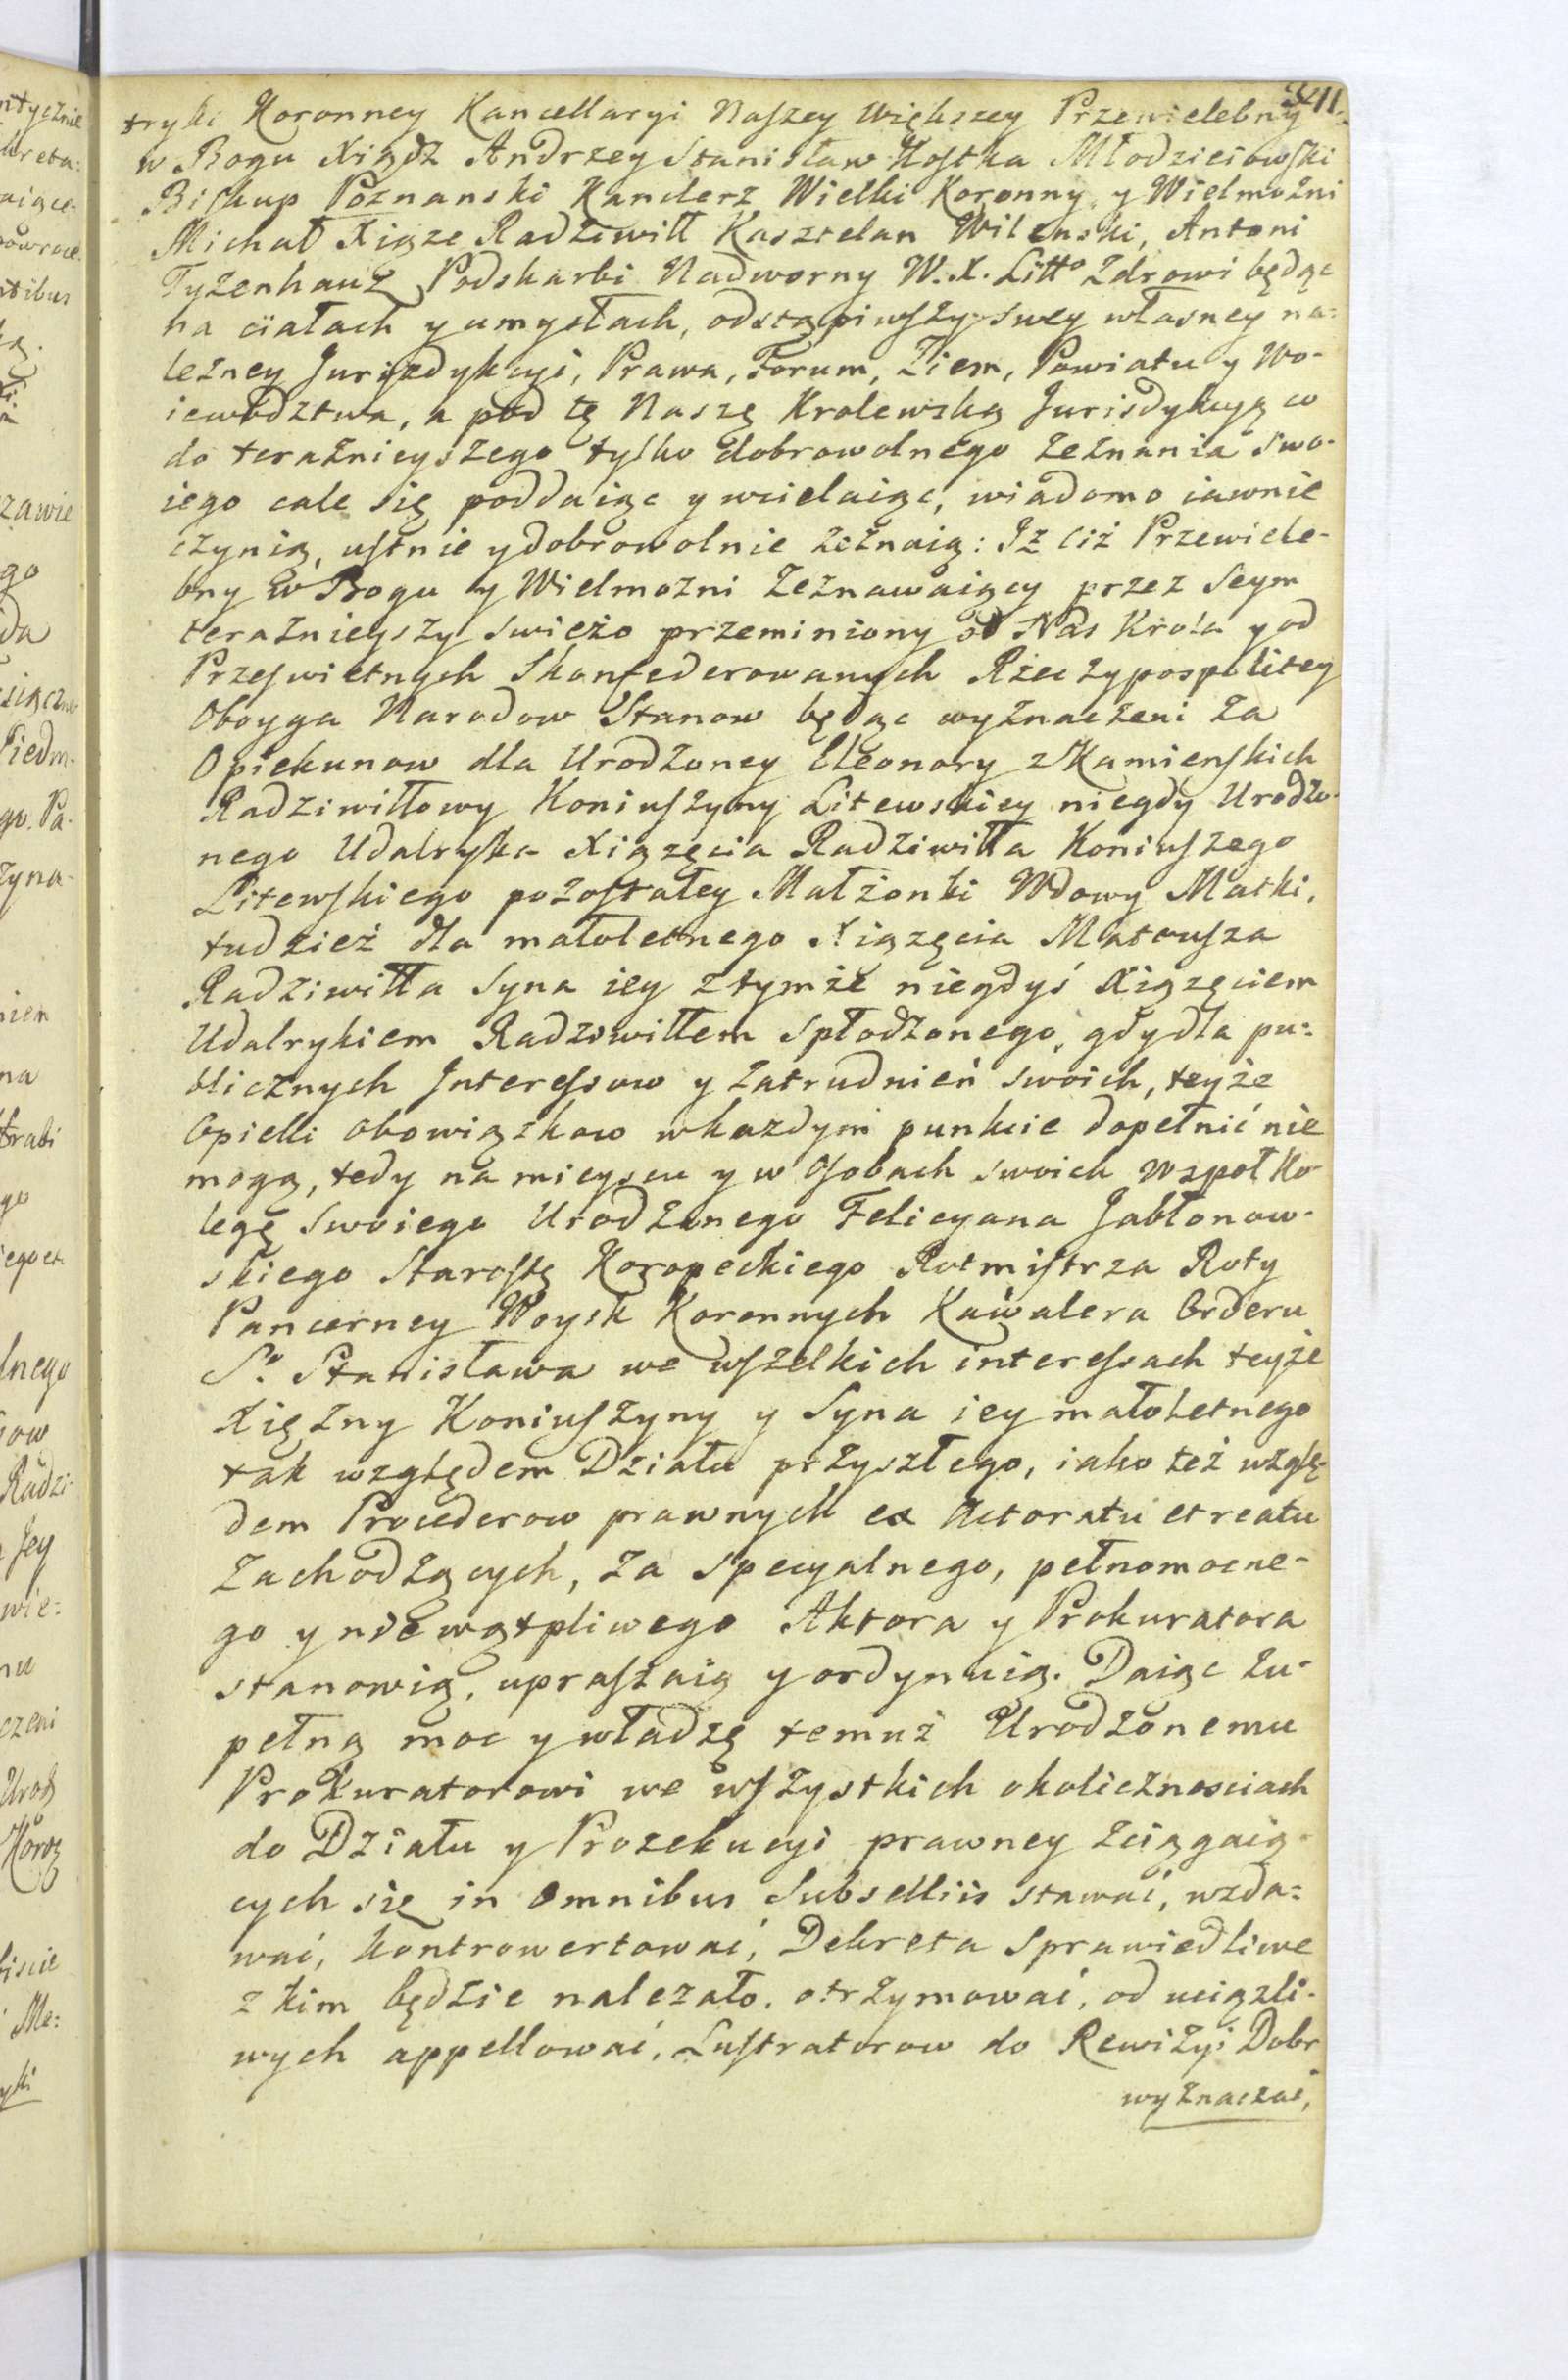 341.
tryki Koronney Kancellaryi Naszey Większey Przewielebny
w Bogu Xiądz Andrzey Stanisław Kostka Młodzieiowski
Biskup Poznanski Kanclerz Wielki Koronny, y Wielmożni
Michał Xiąże Radziwiłł Kasztelan Wilenski, Antoni
Tyzenhauz Podskarbi Nadworny W. X. Litto Zdrowi będąc
na ciałach y umysłach, odstąpiwszy swey własney na=
leżney Jurisdykcyi, Prawa, Forum, Ziem, Powiatu y Wo-
iewodztwa, a pod tę Naszę Krolewską Jurisdykcyą co
do teraznieyszego tylko dobrowolnego zeznania swo-
iego cale się poddaiąc y wcielaiąc, wiadomo iawnie
czynią, ustnie y dobrowolnie zeznaią: Iż ciż Przewiele-
bny w Bogu y Wielmożni Zeznawaiący przez Seym
teraznieyszy swieżo przeminiony od Nas Krola y od
Przeswietnych Skonfederowanych Rzeczypospolitey
Oboyga Narodow Stanow będąc wyznaczeni za
Opiekunow dla Urodzoney Eleonory z Kamienskich
Radziwiłłowy Koniuszyny Litewskiey niegdy Urodzo-
nego Udalryka Xiązęcia Radziwiłła Koniuszego
Litewskiego pozostałey Małżonki Wdowy Matki,
tudzież dla małoletnego Xiązęcia Mateusza
Radziwiłła Syna iey z tymże niegdyś Xiązęciem
Udalrykiem Radziwiłłem Spłodzonego, gdy dla pu=
blicznych Interessow y zatrudnień swoich, teyże
Opieki obowiązkow w kazdym punkcie dopełnić nie
mogą, tedy na mieyscu y w Osobach swoich Wspoł Ko-
legę swoiego Urodzonego Felicyana Jabłonow-
skiego Starostę Koropeckiego Rotmistrza Roty
Pancerney Woysk Koronnych Kawalera Orderu
So Stanisława we wszelkich interessach teyże
Xiężny Koniuszyny y Syna iey małoletnego
tak względem Działu przyszłego, iako też wzglę-
dem Procederow prawnych ex Actoratu et reatu
Zachodzących, za Specyalnego, pełnomocne-
go y niewątpliwego Aktora y Prokuratora
stanowią, upraszaią y ordynuią. Daiąc zu-
pełną moc y władzę temuż Urodzonemu
Prokuratorowi we wszystkich okolicznosciach
do Działu y Prozekucyi prawney zciągaią-
cych się in omnibus Subselliis stawać, wzda=
wać, kontrowertować, Dekreta sprawiedliwe
z kim będzie nalezało, otrzymować, od uciązli-
wych appellować, Lustratorow do Rewizyi Dobr
wyznaczać,